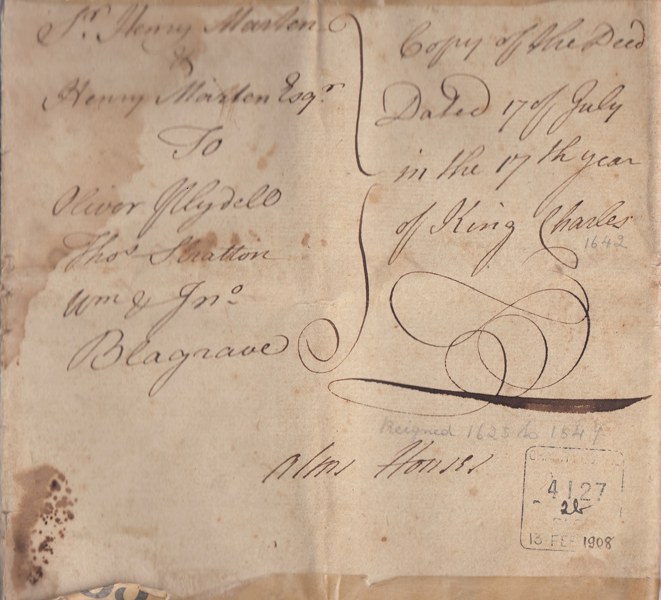 Sr. Henry Marten
&
Henry Marten Esqr
To
Oliver Pleydell
Thos Stratton
Wm & Jno
Blagrave
Copy of the Deed
Dated 17 of July
in the 17th year
of King Charles
1642
Reigned 1625 to 1649
Alms Houses
4127
26
13 FEB 1908